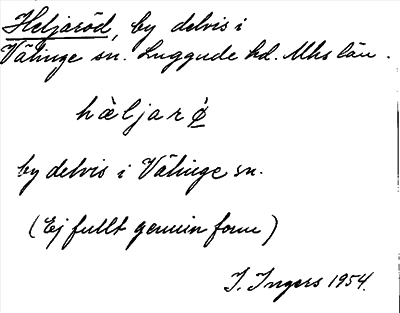 Heljaröd, by delvis i
Välinge sn. Luggude hd. Mhs län.
hæ̀ljarǿ
by delvis i Välinge sn.
(Ej fullt genuin form)
I. Ingers 1954.